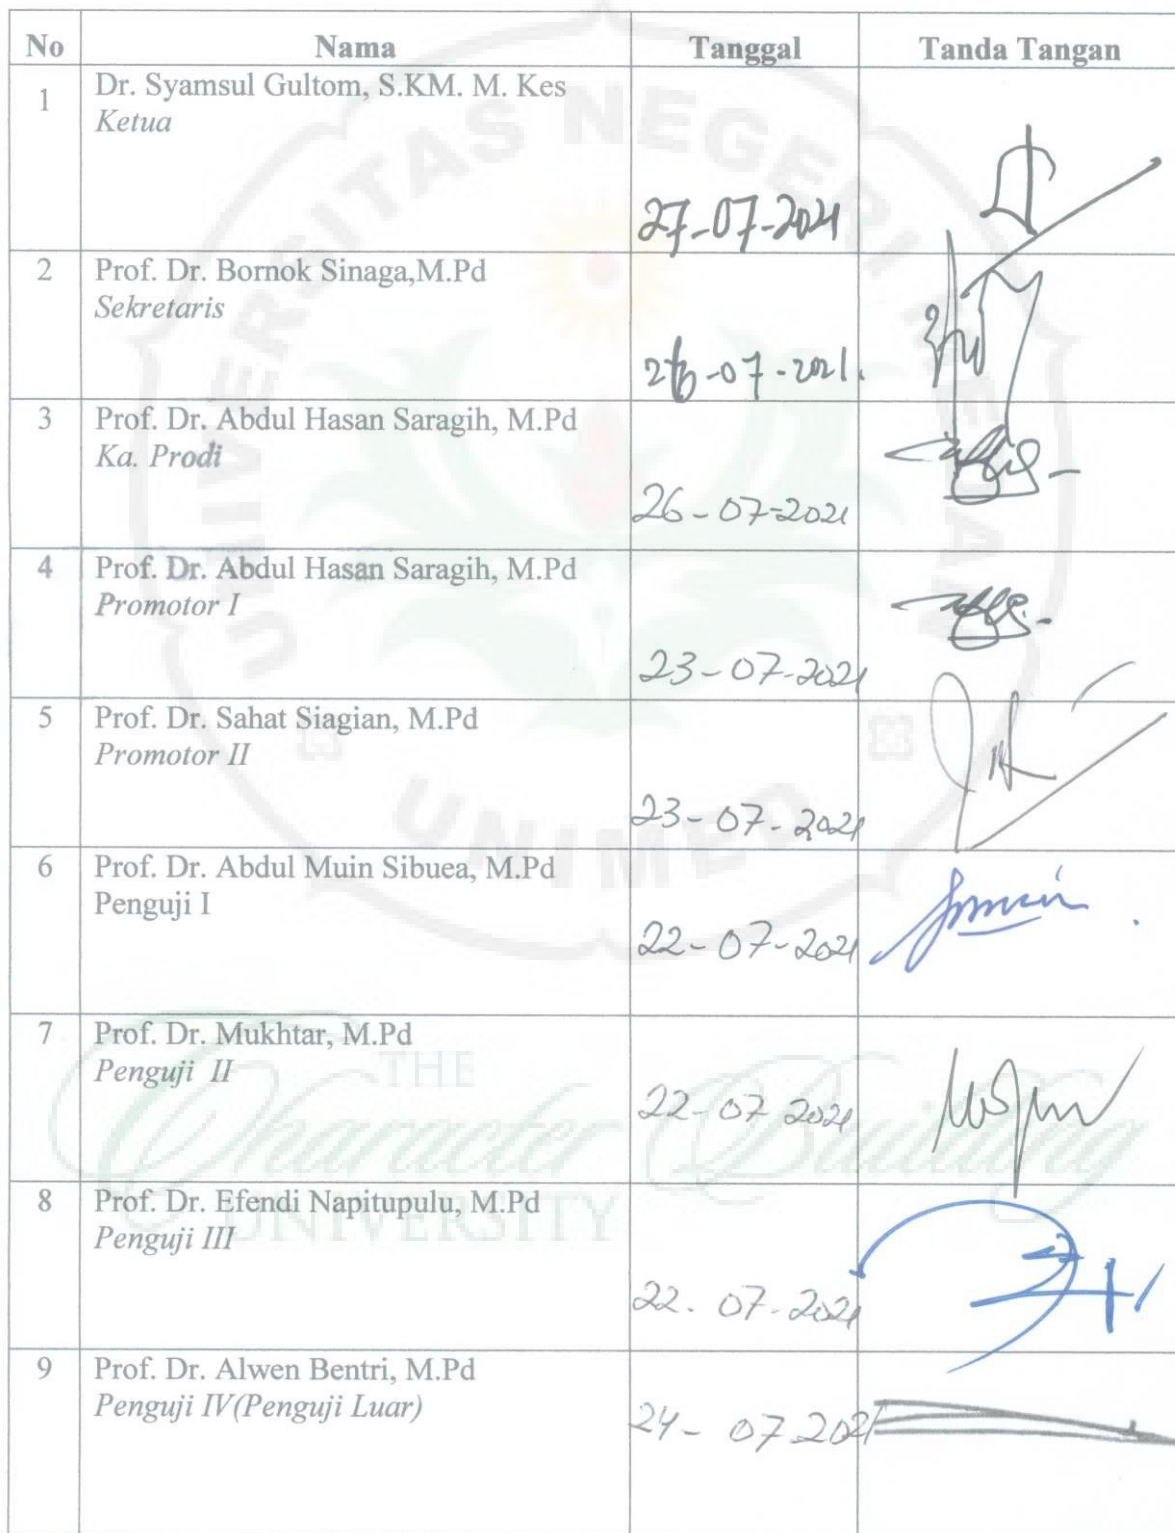 No Nama Tanggal Tanda Tangan
1 Dr. Syamsul Gultom, S.KM. M. Kes
Ketua
27-07-2021
2 Prof. Dr. Bornok Sinaga,M.Pd
Sekretaris
-07-2021.
3 Prof. Dr. Abdul Hasan Saragih, M.Pd
Ka. Prodi
26-07-2021
4 Prof. Dr. Abdul Hasan Saragih, M.Pd
Promotor I
23-07-2021
5 Prof. Dr. Sahat Siagian, M.Pd
Promotor II
23-07-2021
6 Prof. Dr. Abdul Muin Sibuea, M.Pd
Penguji I
22-07-2021
7 Prof. Dr. Mukhtar, M.Pd
Penguji II
22-07 2021
8 Prof. Dr. Efendi Napitupulu, M.Pd
Penguji III
22. 07-2021
9 Prof. Dr. Alwen Bentri, M.Pd
Penguji IV(Penguji Luar)
24- 07.2021
UNIVERSITAS NEGERI MEDAN
UNIMED
THE
Character Building
UNIVERSITY